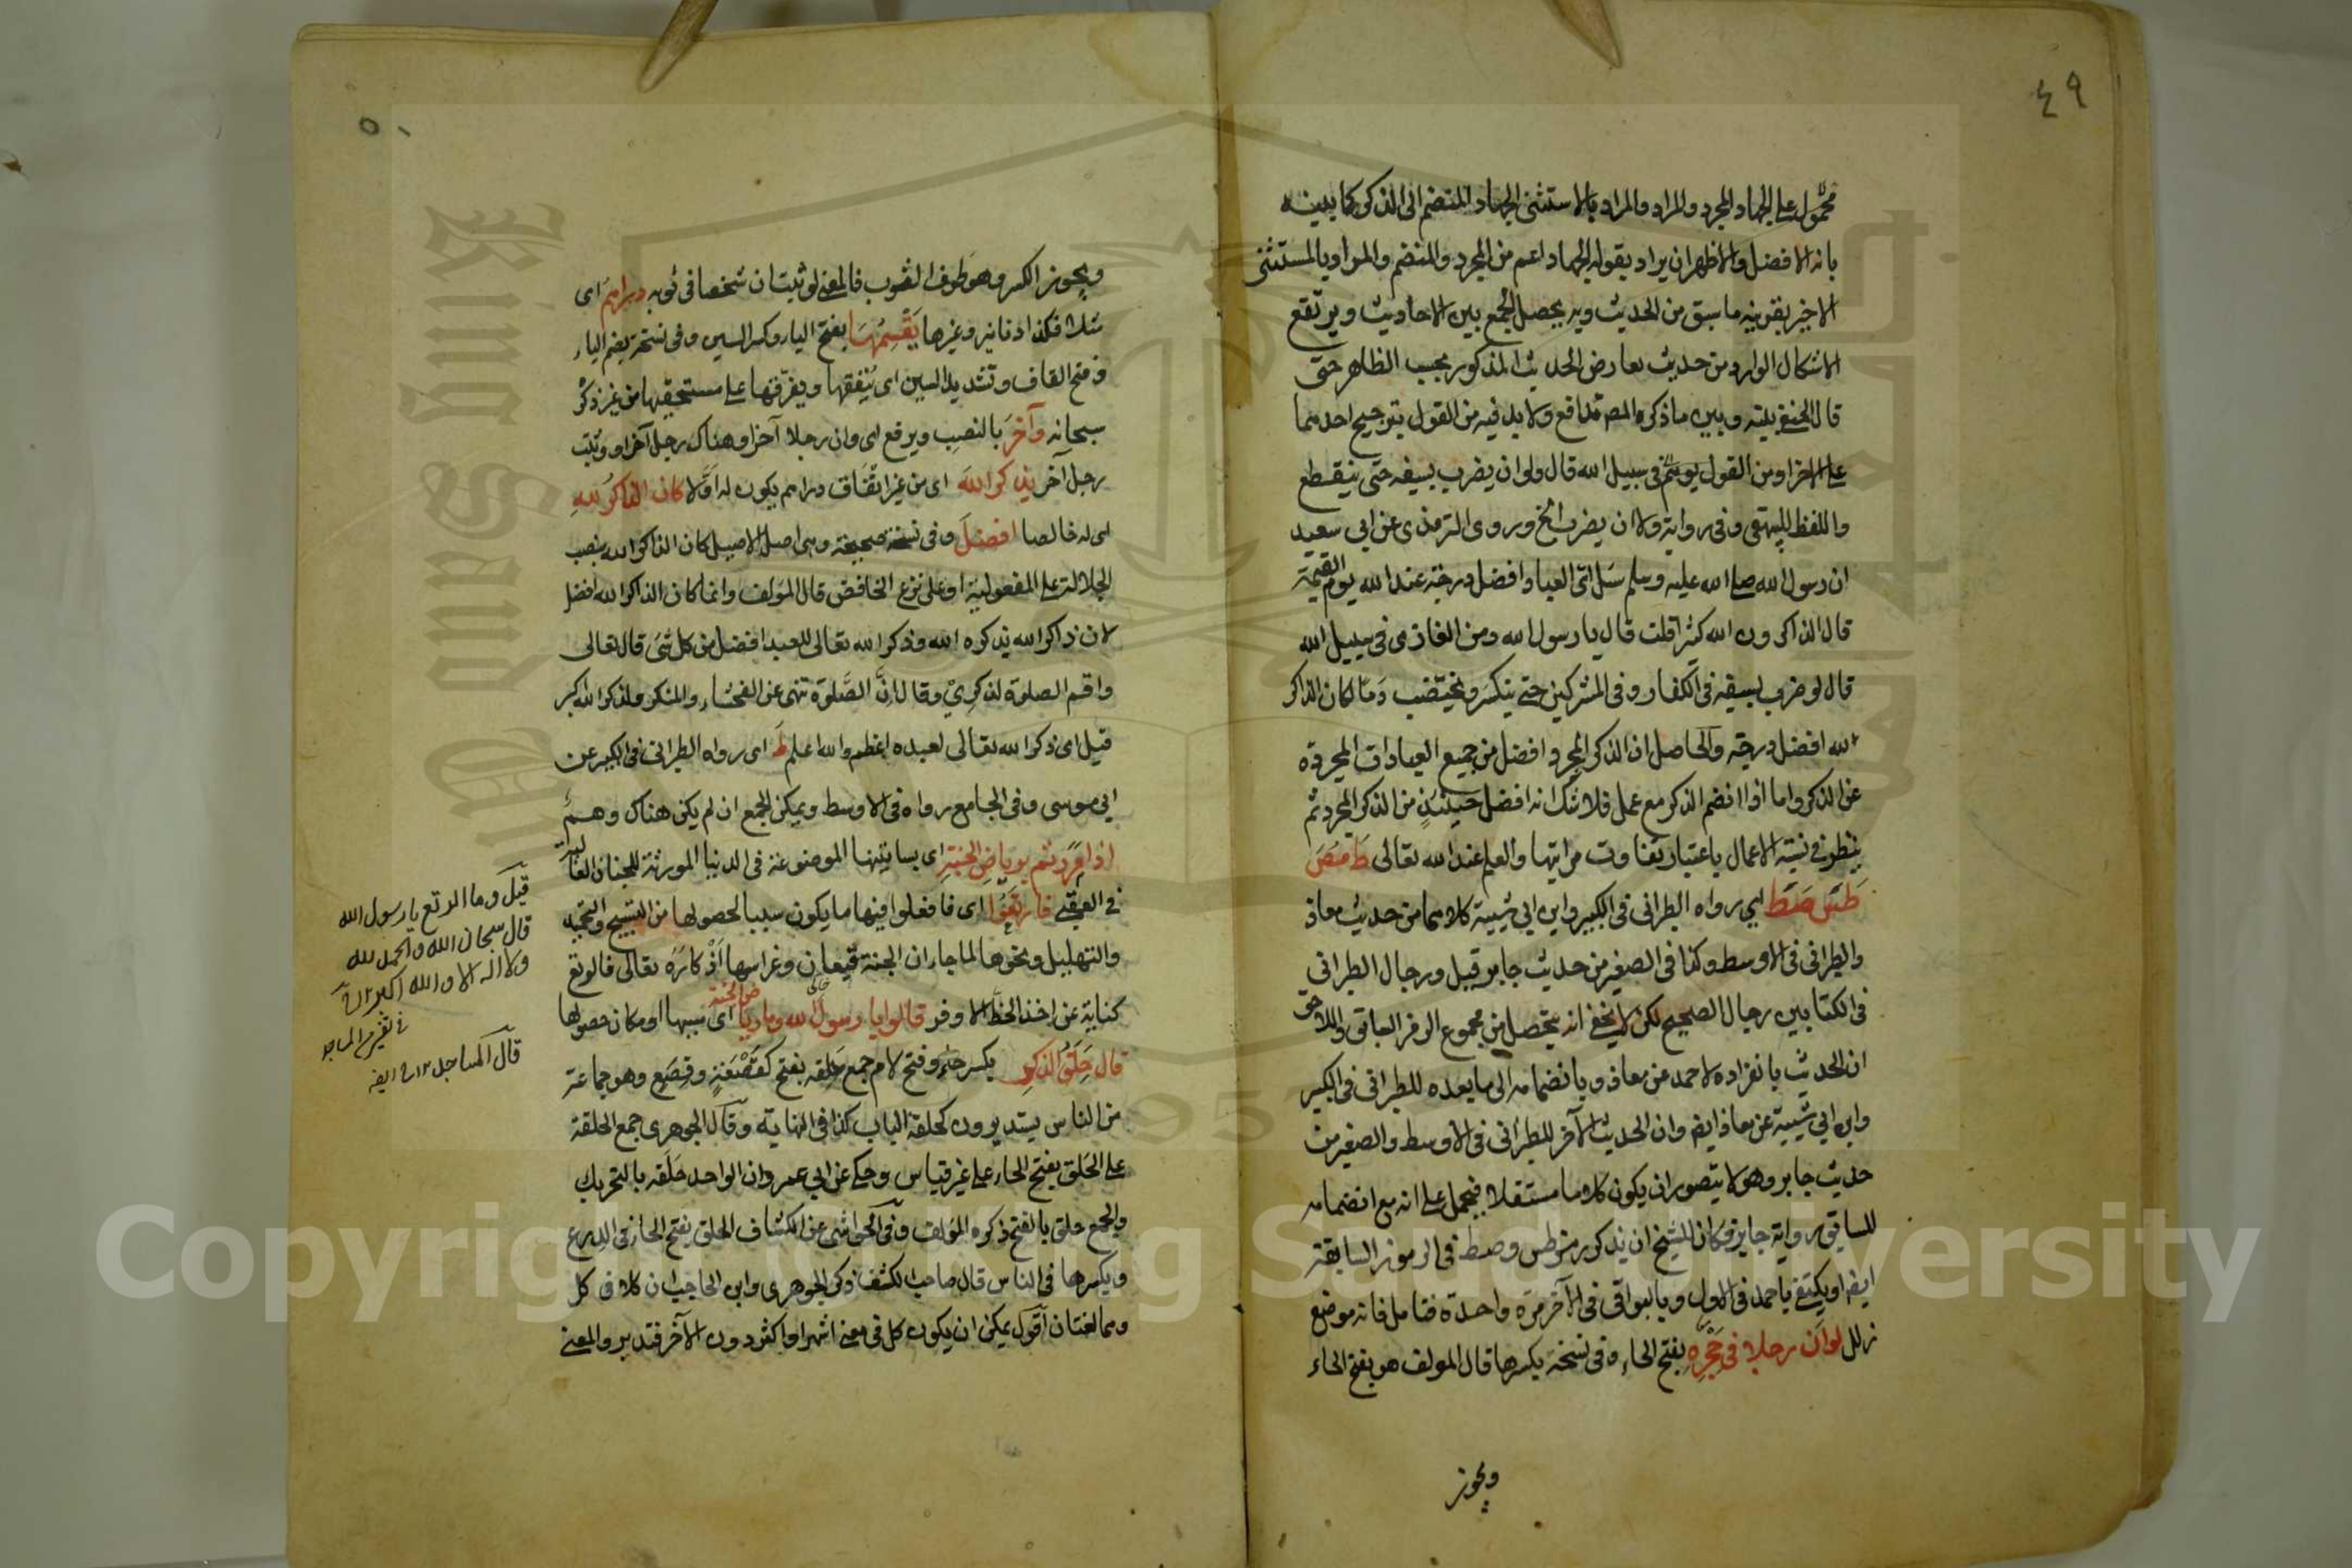 ٤٩
محمول على الجهاد المجرد والمراد والمراد بالاستثنى الجهاد المنضم الى الذكر كما بينته
بانه الافضل والاظهر ان يراد بقوله الجهاد اعم من المجرد والمنضم والمراد بالمستثنى
الاخير بقرينة ما سبق من الحديث وبه يحصل الجمع بين الاحاديث ويرتفع
الاشكال الوارد من حديث تعارض الحديث المذكور بحسب الظاهر حتى
قال الحنفي بينه وبين ما ذكره المص تدافع ولا بد فيه من القول بترجيح احدهما
على الاخر او من القول في سبيل الله قال ولو ان يضرب بسيفه حتى ينقطع
واللفظ للبيهقي وفى رواية ولا ان يضرب الخ وروى الترمذى عن ابي سعيد
ان رسول الله صلى الله عليه وسلم سئل اى العباد افضل درجة عند الله يوم القيمة
قال الذاكرون الله كثيرا قلت قال يا رسول الله ومن الغازى فى سبيل الله
قال لو ضرب بسيفه فى الكفار وفى المشركين حتى ينكسر ويختضب دما لكان الذاكر
لله افضل درجة والحاصل ان الذكر المجرد افضل من جميع العبادات المجردة
عن الذكر واما اذا انضم الذكر مع عمل فلا شك انه افضل حينئذ من الذكر المجرد ثم
ينظر فى نسبة الاعمال باعتبار تفاوت مراتبها والعلم عند الله تعالى ط مص
طس صط اي رواه الطبرانى فى الكبير وابن ابي شيبة كلاهما من حديث معاذ
والطبرانى فى الاوسط وكذا فى الصغير من حديث جابر قيل ورجال الطبرانى
فى الكتابين رجال الصحيح لكن لا يخفى انه يتحصل من مجموع الوفر السابق واللاحق
ان الحديث بانفراده لاحمد عن معاذ وبانضمامه الى ما بعده للطبرانى فى الكبير
وابن ابي شيبة عن معاذ ايضا وان الحديث الآخر للطبرانى فى الاوسط والصغير من
حديث جابر وهو لا يتصور ان يكون كلاما مستقلا فيحمل على انه مع انضمامه
للسابق رواية جابر فكان للشيخ ان يذكر رمز طس وصط فى الرموز السابقة
ايضا او يكتفى باحمد فى الاول وبالبواقى فى الآخر مرة واحدة فتامل فانه موضع
زلل لو ان رجلا فى حجره بفتح الحاء وفى نسخة بكسرها قال المؤلف هو بفتح الحاء
ويجوز
٥٠
ويجوز الكسر وهو طرف الثوب فالمعنى لو ثبت ان شخصا فى ثوبه دراهم اى
مثلا فكذا دنانير وغيرها يقسمها بفتح الياء وكسر السين وفى نسخة بضم الياء
وفتح القاف وتشديد السين اى ينفقها ويفرقها على مستحقيها من غير ذكر
سبحانه وآخر بالنصب ويرفع اى وان رجلا آخر او وهناك رجل آخر او وثبت
رجل آخر يذكر الله اى من غير انفاق دراهم يكون له اولا كان الذاكر لله
اى له خالصا افضل وفى نسخة صحيحة وهى اصل الاصيل كان الذاكر الله بنصب
الجلالة على المفعولية او على نزع الخافض قال المؤلف وانما كان الذاكر لله افضل
لان ذاكر الله يذكره الله وذكر الله تعالى للعبد افضل من كل شئ قال تعالى
واقم الصلوة لذكري وقال ان الصلوة تنهى عن الفحشاء والمنكر ولذكر الله اكبر
قيل اى ذكر الله تعالى لعبده اعظم والله اعلم ط اى رواه الطبرانى فى الكبير عن
ابي موسى وفى الجامع رواه فى الاوسط ويمكن الجمع ان لم يكن هناك وهم
اذا مررتم برياض الجنة اى بساتينها الموضوعة فى الدنيا المورثة للجنان العالية
فى العقبى فارتعوا اى فافعلوا فيها ما يكون سببا لحصولها من التسبيح والتحميد
والتهليل ونحوها لما جاء ان الجنة قيعان وغراسها اذكاره تعالى فالرتع
كناية عن اخذ الحظ الاوفر قالوا يا رسول الله وما رياض الجنة اى سببها او مكان حصولها
قال حلق الذكر بكسر حاء وفتح لام جمع حلقة بفتح كقصعة وقصع وهو جماعة
من الناس يستديرون كحلقة الباب كذا فى النهاية وقال الجوهرى جمع الحلقة
على الحلق بفتح الحاء على غير قياس وحكى عن ابي عمرو ان الواحد حلقة بالتحريك
والجمع حلق بالفتح ذكره المؤلف وفى الحواشى عن الكشاف الحلق بفتح الحاء فى الدرع
وبكسرها فى الناس قال صاحب الكشف ذكر الجوهرى وابن الحاجب ان كلا فى كل
وهما لغتان اقول يمكن ان يكون كل فى معنى اشهر او اكثر دون الآخر فتدبر والمعنى
قيل وما الرتع يا رسول الله
قال سبحان الله والحمد لله
ولا اله الا الله والله اكبر
قال المساجد